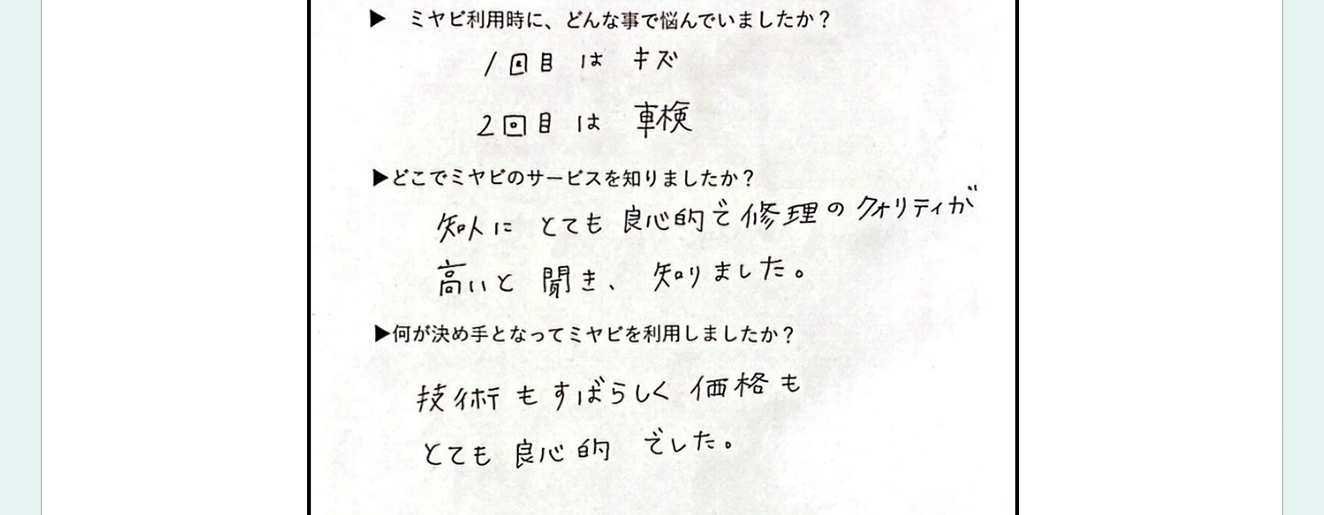 ▶ ミヤビ利用時に、どんな事で悩んでいましたか？
1回目は キズ
2回目は 車検
▶どこでミヤビのサービスを知りましたか？
知人に とても 良心的で 修理の クォリティが
高いと 聞き、知りました。
▶何が決め手となってミヤビを利用しましたか？
技術も すばらしく 価格も
とても 良心的 でした。